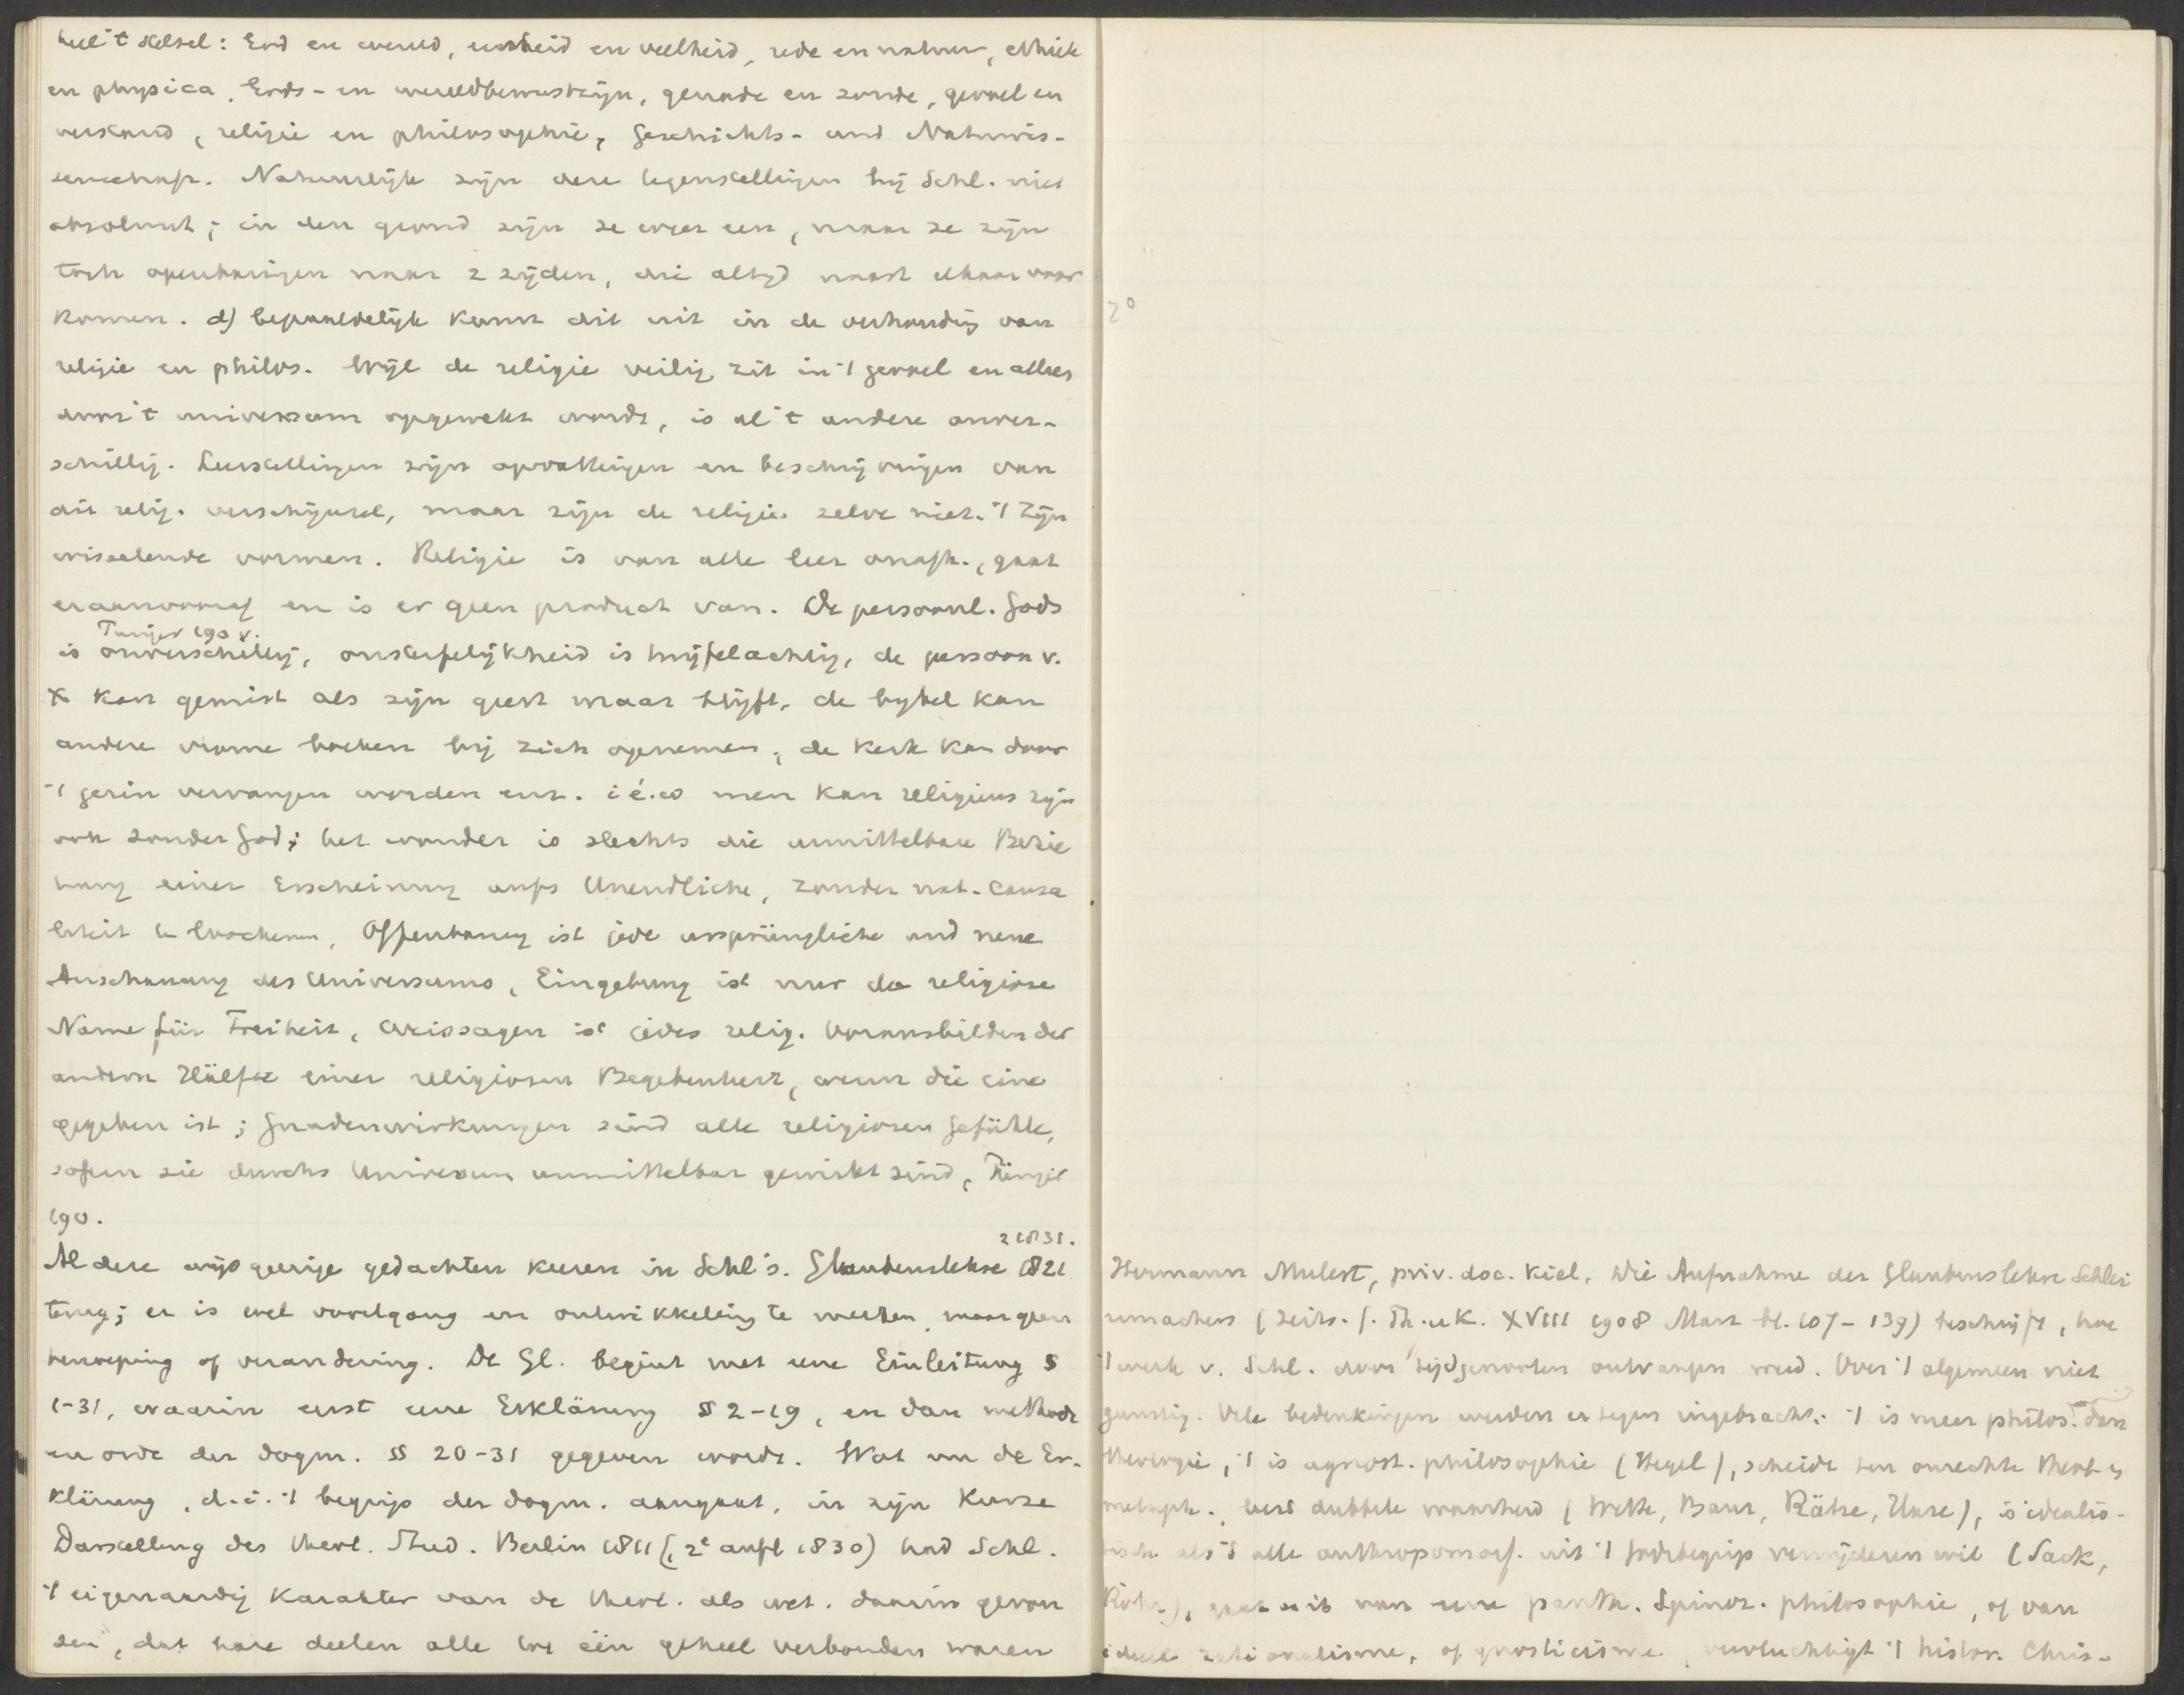 heel 't stelsel: God en wereld, eenheid en veelheid, rede en natuur, ethiek
en physica, Gods- en wereldbewustzijn, genade en zonde, gevoel en
verstand, religie en philosophie, Geschichts- und Naturwis-
senschaft. Natuurlijk zijn deze tegenstellingen bij Schl. niet
absoluut; in den grond zijn ze weer een, maar ze zijn
toch openbaringen naar 2 zijden, die altijd naast elkaar voor
komen. d) bepaaldelijk komt dit uit in de verhouding van
religie en philos. Wijl de religie veilig zit in 't gevoel en alleen
door 't universum opgewekt wordt, is al 't andere onver-
schillig. Leerstellingen zijn opvattingen en beschrijvingen van
dit relig. verschijnsel, maar zijn de religie zelve niet. 't Zijn
wisselende vormen. Religie is van alle leer onafh., gaat
eraanvooraf en is er geen product van. De persoonl. Gods
Tunjer 190 v.
is onverschillig, onsterfelijkheid is twijfelachtig, de persoon v.
X kan gemist als zijn geest maar blijft, de bijbel kan
andere vrome boeken bij zich opnemen, de kerk kan door
't gezin vervangen worden enz. i é.w men kan religieus zijn
ook zonder God; het wonder is slechts die unmittelbare Bezie
hung einer Erscheinung aufs Unendliche, zonder nat. causa
liteit te verbreken, Offenbarung ist jede ursprüngliche und neue
Anschauung des Universums, Eingebung ist nur der religiöse
Name für Freiheit, Weissagen ist jedes relig. Vorausbilden der
andern Hälfte einer religiösen Begebenheit, wenn die eine
gegeben ist; Gnadenwirkungen sind alle religiosen Gefühle,
sofern sie durchs Universum unmittelbar gewirkt sind,
190.
2 1831.
Al deze wijsgeerige gedachten keeren in Schl's. Glaubenslehre 1821
terug; er is wel voortgang en ontwikkeling te merken, maar geen
herroeping of verandering. De Gl. begint met eene Einleitung §
1-31, waarin eerst eene Erklärung §§ 2-19, en dan methode
en orde der dogm. §§ 20-31 gegeven wordt. Wat nu de Er-
klärung, d. i. 't begrip der dogm. aangaat, in zijn Kurze
Darstellung des theol. Stud. Berlin 1811 (, 2e aufl 1830) had Schl.
't eigenaardig karakter van de theol. als wet. daarin gevon
den, dat hare deelen alle tot één geheel verbonden waren
2°
Hermann Mulert, priv. doc. Kiel, Die Aufnahme der Glaubenslehre Schlei
ermachers (Zeits. f. Th. u K. XVIII 1908 Marz bl. 107-139) beschrijft, hoe
't werk v. Schl. door tijdgenooten ontvangen werd. Over 't algemeen niet
gunstig. Vele bedenkingen werden er tegen ingebracht: 't is meer philos. dan
theologie, 't is agnost. philosophie (Hegel), scheidt ten onrechte theol. en
metaph., leert dubbele waarheid (Baur, Rätze, Hase), is idealis-
tisch als 't alle anthropomorf. uit 't Godsbegrip verwijderen wil (Sack,
Röhr), gaat uit van eene panth. Spinoz. philosophie, of van
rationalisme, of gnosticisme, vervluchtigt 't histor. Chris-